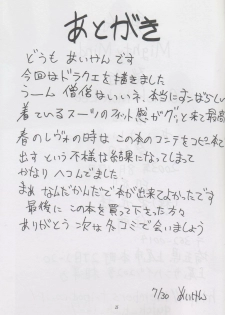 あとがき
どうも あいやんです
今回はドラクエを描きました
うーん 僧侶はいいネ、本当にすばらしい
着ているスーツのフィット感がグッと来て最高
春のレヴォの時は この本のコンテをコピー本で
出す という不様な結果になってしまって
かなり ヘコんでました.
まぁ なんだかんだで本が出来てよかったです
最後に この本を買って下さった方々
ありがとう 次は冬コミで会いましょう
7/30